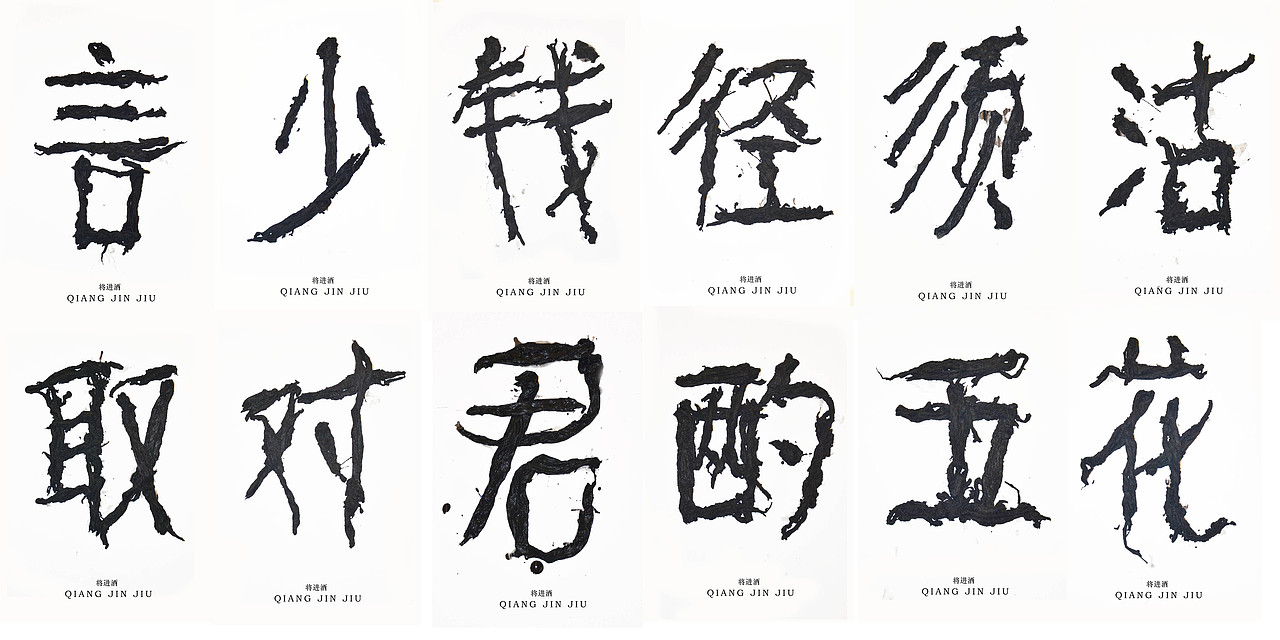 言 少 钱 径 须 沽
将进酒 将进酒 将进酒 将进酒 将进酒 将进酒
QIANG JIN JIU QIANG JIN JIU QIANG JIN JIU QIANG JIN JIU QIANG JIN JIU QIANG JIN JIU
取 对 君 酌 五 花
将进酒 将进酒 将进酒 将进酒 将进酒 将进酒
QIANG JIN JIU QIANG JIN JIU QIANG JIN JIU QIANG JIN JIU QIANG JIN JIU QIANG JIN JIU